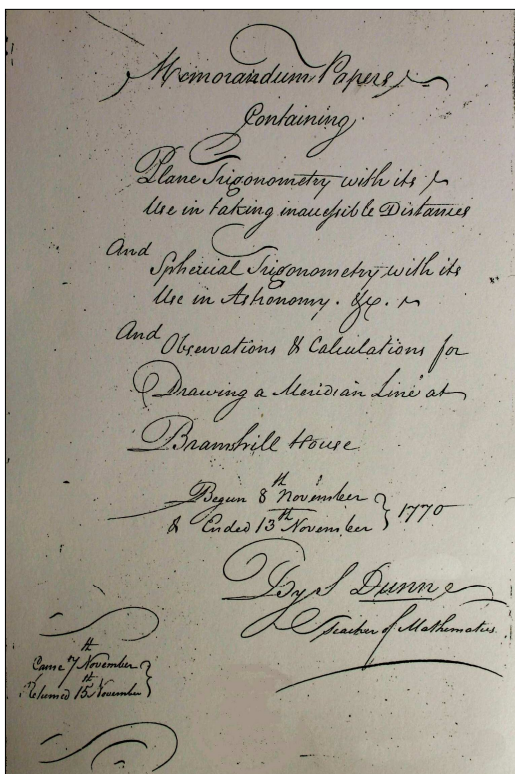 Memorandum Papers
Containing
Plane Trigonometry with its
Use in taking inaccessible Distances
And
Spherical Trigonometry with its
Use in Astronomy. &c.
And Observations & Calculations for
Drawing a Meridian Line at
Bramshill House
Begun 8th November
& Ended 13th November } 1770
By S Dunn
Teacher of Mathematics
Came 7th November
Returned 15th November }